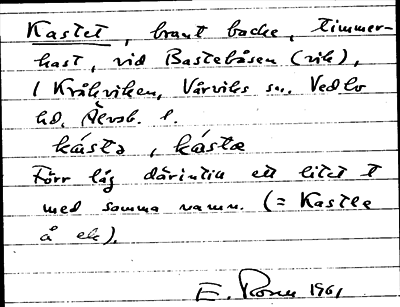 Kastet, brant backe, timmer-
kast, vid Bastebåsen (vik),
i Kråkviken, Vårviks sn. Vedbo
hd, Älvsb. l.
kástə, kástæ
Förr låg därintill ett litet t
med samma namn. (= Kastle
å ek).
E. 1961